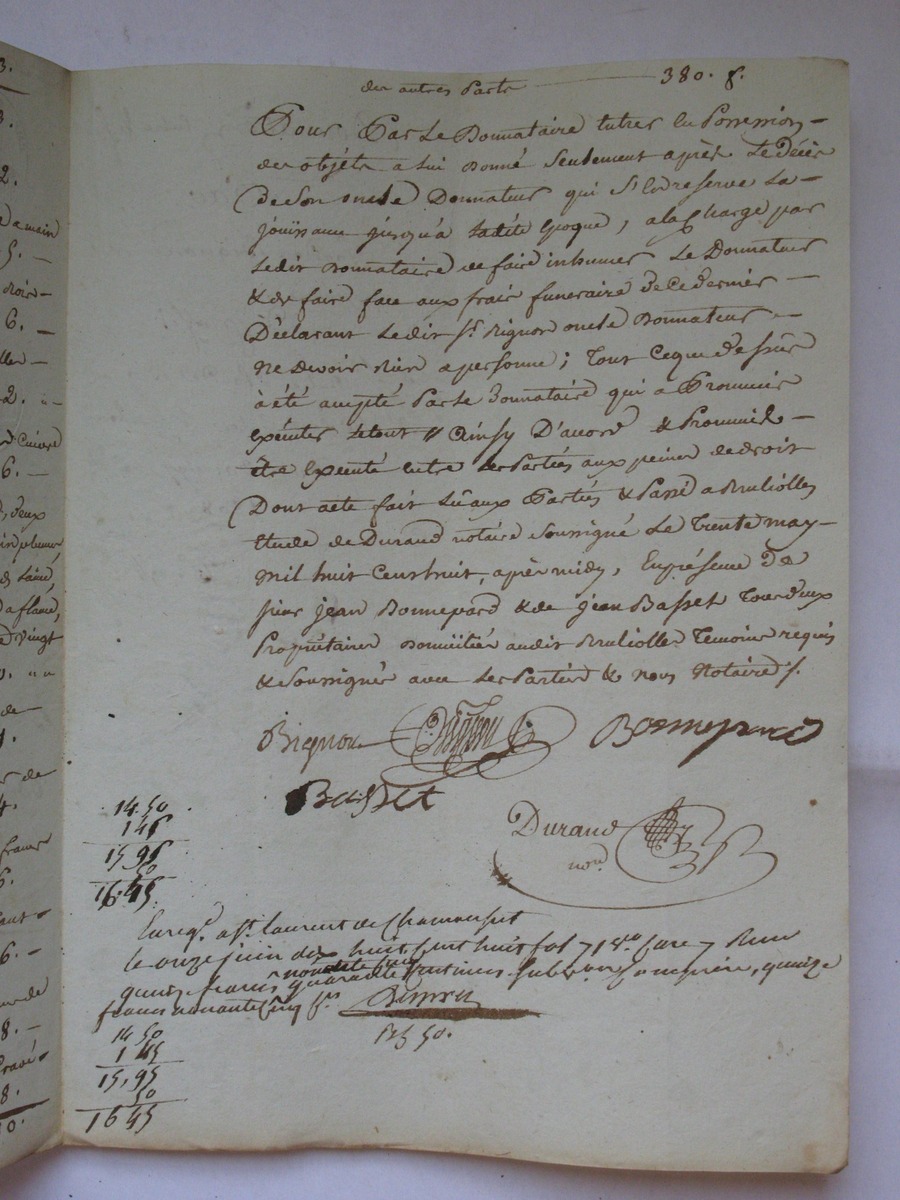 des autres Parts ——— 380. 8.
Pour Par Le Donnataire Entrer En Possession –
des objets a lui donné Seulement après Le décès
de Son oncle Donnateur qui S'En reserve La –
joüissance jusqu'à ladite Epoque, a la Charge par
Ledit Donnataire de faire inhumer Le Donnateur
& de faire face aux frais funeraire de Ce dernier –
Déclarant Ledit Sr. Bignon oncle Donnateur –
Ne devoir Rien a personne ; Tout Ceque dessus
à été accepté Par Le Donnataire qui a Prommis
Exécuter Le tout // Ainsy D'accord & Prommis –
être Exécuté Entre Les Parties aux peines de droit
Dont acte fait Lû aux Parties & Passé a Brulliolles
Etude de Durand notaire Soussigné Le Trente may –
mil huit Cent huit, après midy, En présence de
Sieur jean Bonnepard & de jean Basset Tous deux
Propriétaires Domiciliés audit Brulliolles Temoins requis
& Soussignés avec Les Parties & nous Notaire /.
Bignon Bignon Bonnepard
Basset
Durand
nore.
14. 50
1 45
15, 95
50
16. 45
Enregé. a St. Laurent de Chamousset
le onze juin dix huit Cent huit fol 7 Ro Case 7 Reçu
quinze francs nonante cinq centimes Subvention Comprise, quinze
francs nonante Cinq Cmes
14 50
1 45
15, 95
50
16 45
50.
3.
3.
2.
a main
5. –
6. –
2. "
Cuivre
6. –
deux
vingt
de
1.
de
4.
francs
6. –
de
8. –
8.